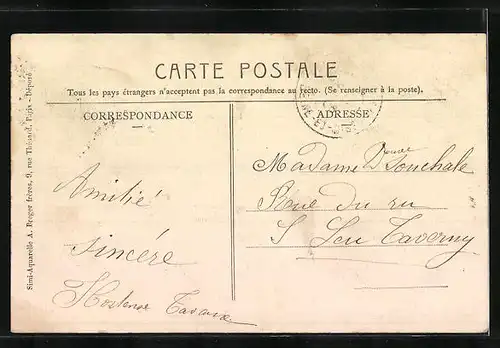 CARTE POSTALE
Tous les pays étrangers n'acceptent pas la correspondance au recto. (Se renseigner à la poste).
CORRESPONDANCE
ADRESSE
Simi-Aquarelle A. Breger frères, 9, rue Thénard, Paris - Déposé
Amitié
sincère
Hortense
Madame Veuve
Rue du ru
S Leu Taverny